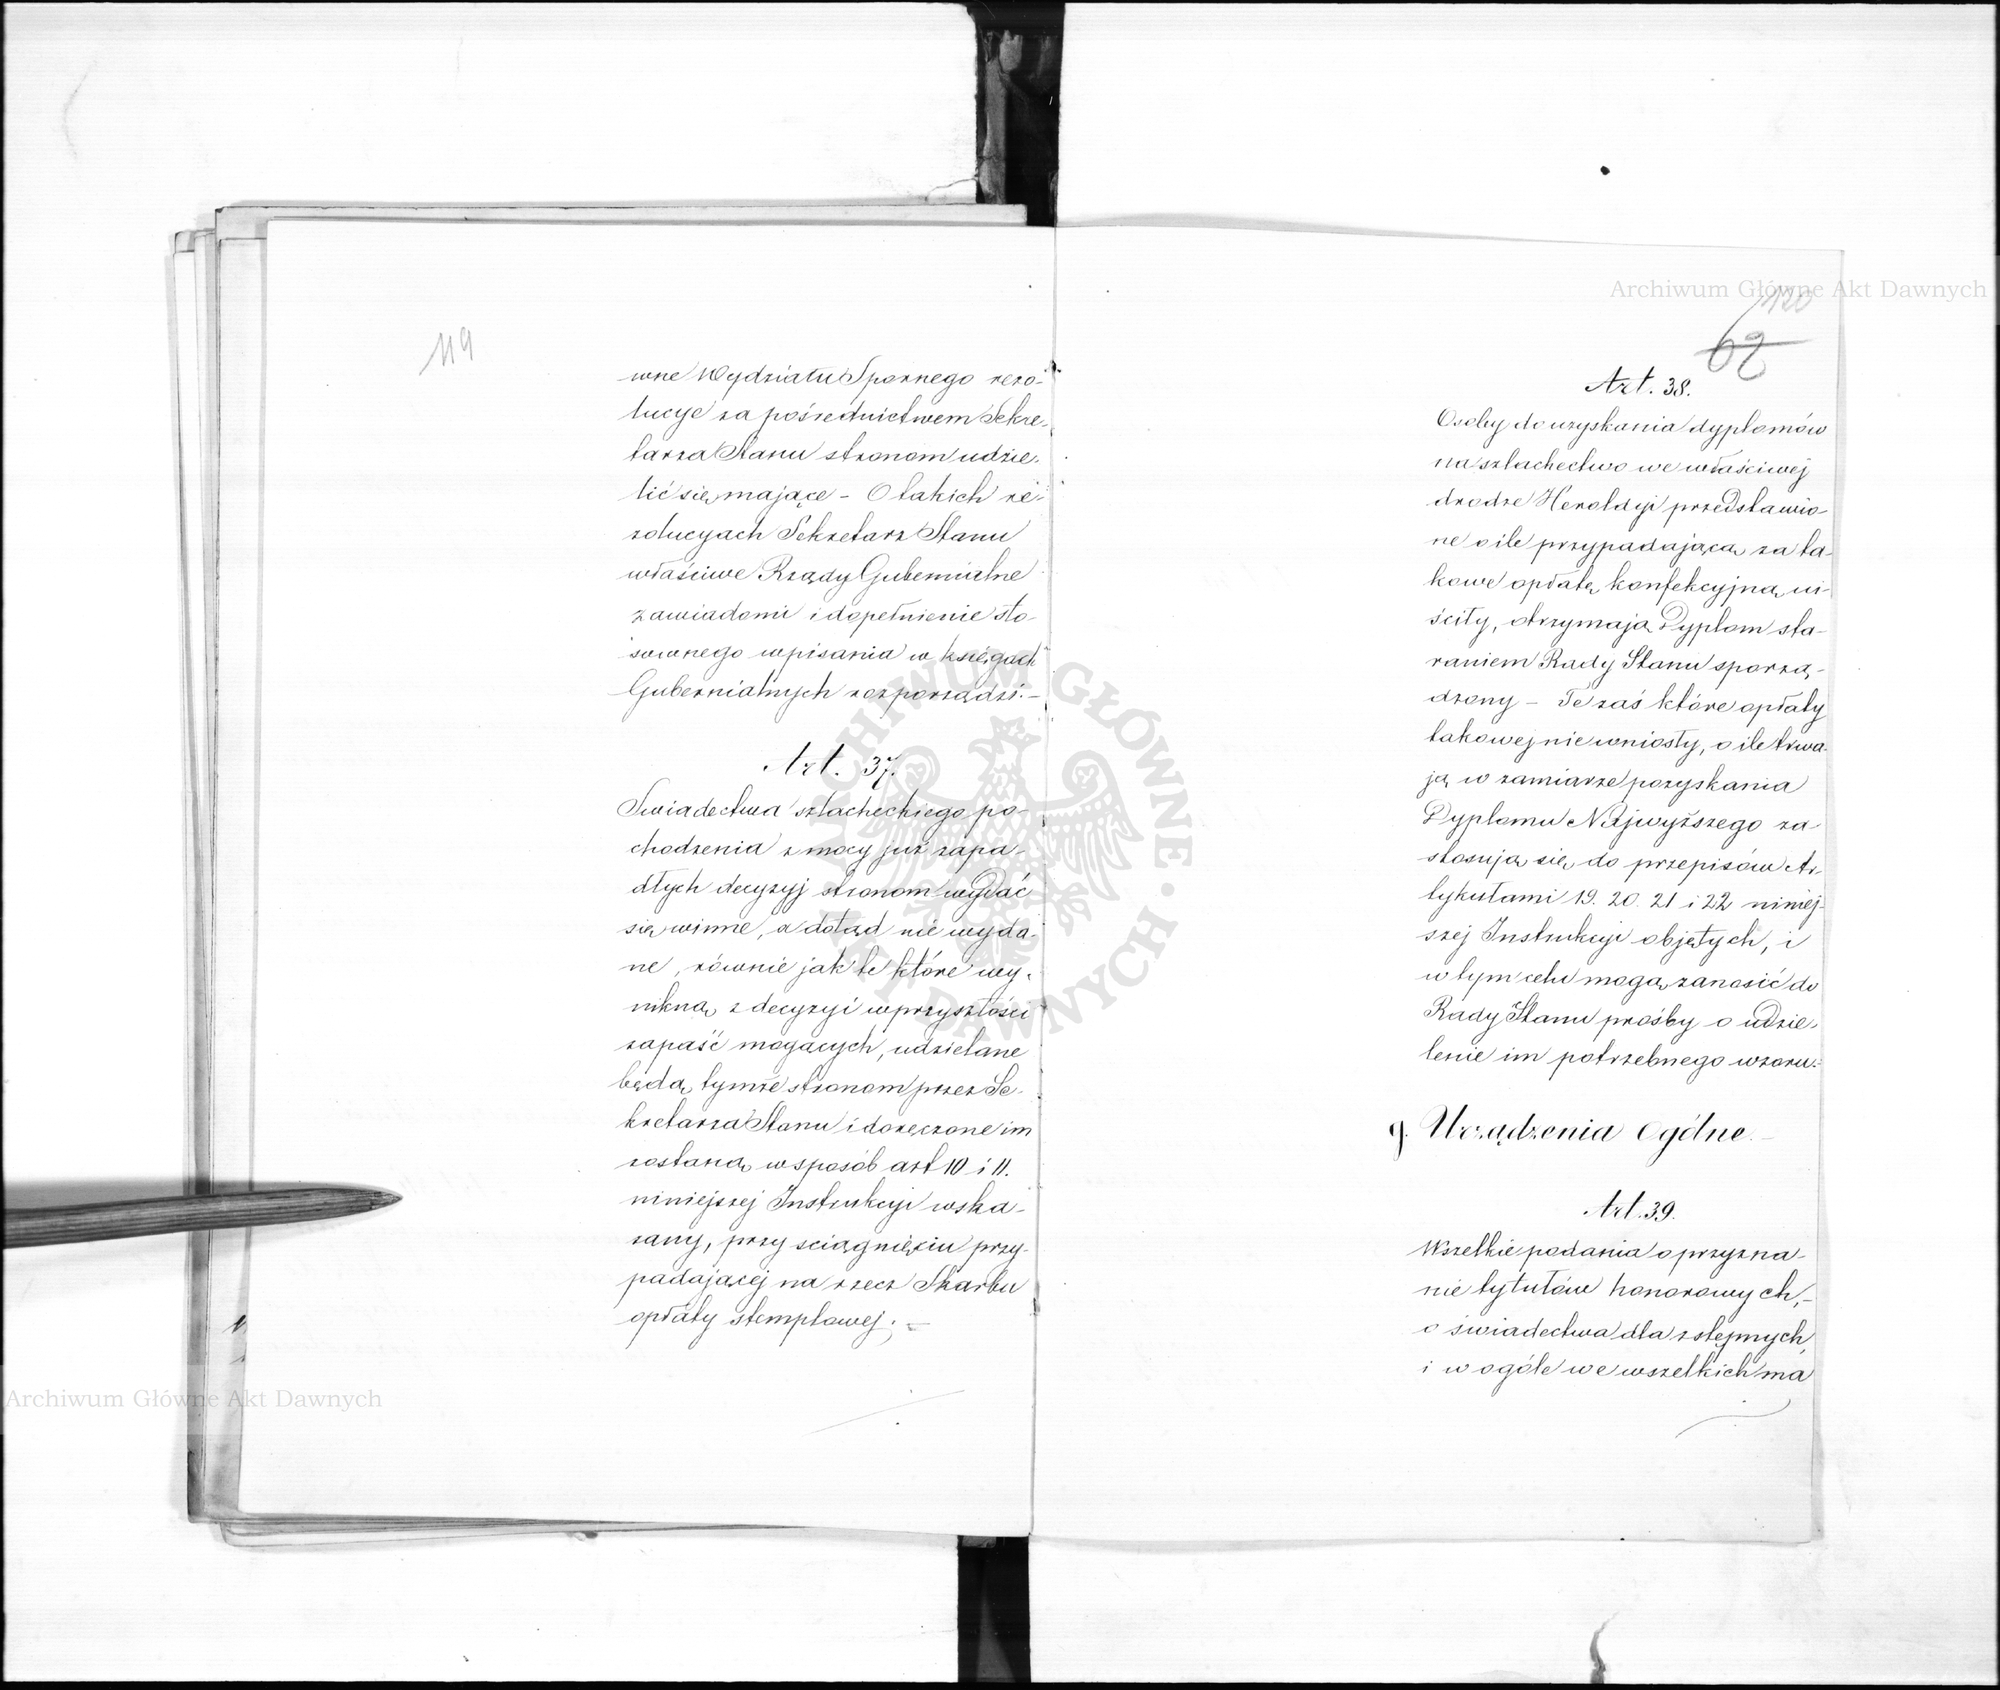 119
wne Wydziału Spornego rezo-
lucye za pośrednictwem Sekre-
tarza Stanu stronom udzie-
lić się mające - O takich re-
zolucyach Sekretarz Stanu
właściwe Rządy Gubernialne
zawiadomi i dopełnienie sto-
sownego wpisania w księgach
Gubernialnych rozporządzi. -
Art. 37.
Swiadectwa szlacheckiego po-
chodzenia z mocy już zapa-
dłych decyzyj stronom wydać
się winne, a dotąd nie wyda-
ne, równie jak te które wy-
nikną z decyzyi w przyszłości
zapaść mogących, udzielane
będą tymże stronom przez Se-
kretarza Stanu i doręczone im
zostaną w sposób art 10 i 11.
niniejszej Instrukcyi wska-
zany, przy sciągnięciu przy-
padającej na rzecz Skarbu
opłaty stemplowej. -
Archiwum Główne Akt Dawnych
120
62
Art. 38.
Osoby do uzyskania dyplomów
na szlachectwo we właściwej
drodze Heroldyi przedstawio-
ne o ile przypadającą za ta-
kowe opłatę konfekcyjną ui-
ściły, otrzymają Dyplom sta-
raniem Rady Stanu sporzą-
dzony - Te zaś które opłaty
takowej nie wniosły, o ile trwa-
ją w zamiarze pozyskania
Dyplomu Najwyższego za-
stosują się do przepisów Ar-
tykułami 19. 20. 21 i 22 niniej-
szej Instrukcyi objętych, i
w tym celu mogą zanosić do
Rady Stanu prośby o udzie-
lenie im potrzebnego wzoru. -
g. Urządzenia ogólne. -
Art. 39.
Wszelkie podania o przyzna-
nie tytułów honorowych, -
o świadectwa dla zstępnych,
i w ogóle we wszelkich ma
Archiwum Główne Akt Dawnych
ARCHIWUM GŁÓWNE AKT DAWNYCH